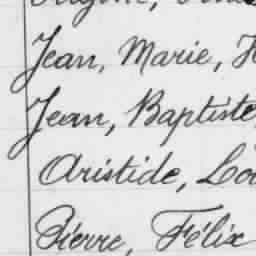 Jean, Marie,
Jean, Baptiste,
Aristide,
Pierre, Félix